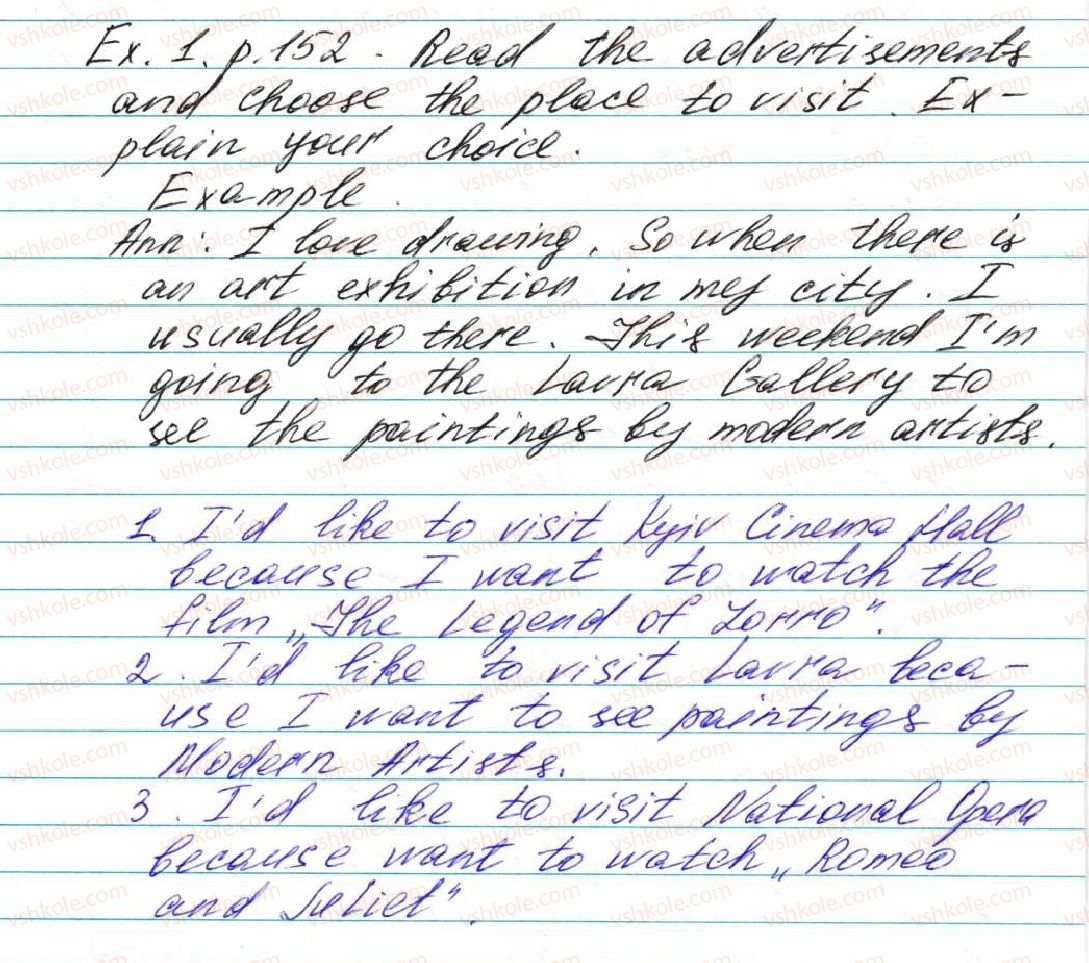 Ex. 1. p. 152 - Read the advertisements
and choose the place to visit. Ex-
plain your choice.
Example.
Ann: I love drawing. So when there is
an art exhibition in my city. I
usually go there. This weekend I'm
going to the Lavra Gallery to
see the paintings by modern artists.
1. I'd like to visit Kyiv Cinema Hall
because I want to watch the
film „The Legend of Zorro".
2. I'd like to visit Lavra beca-
use I want to see paintings by
Modern Artists.
3. I'd like to visit National Opera
because want to watch „Romeo
and Juliet".
vshkole.com